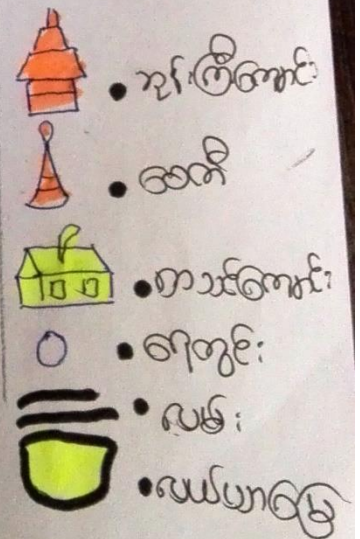 • ဘုန်းကြီးကျောင်း
• စေတီ
• စာသင်ကျောင်း
• ရေတွင်း
• လမ်း
• လယ်ယာမြေ